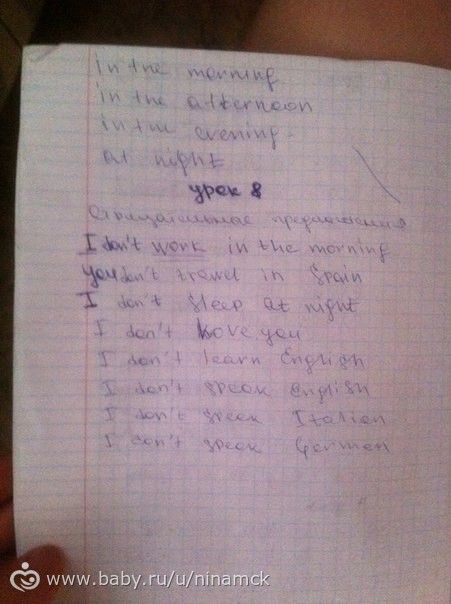 in the morning
in the afternoon
in the evening.
at night
урок 8
отрицательные предложения
I don't work in the morning
you don't travel in Spain
I don't sleep at night
I don't love you
I don't learn English
I don't speak English
I don't speak Italian
I don't speak German
www.baby.ru/u/ninamck